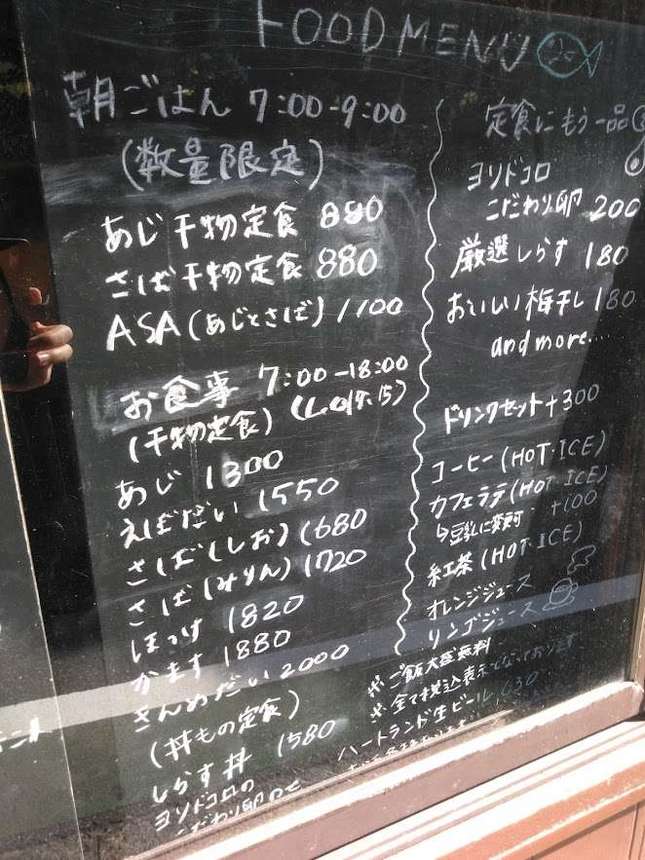 FOOD MENU
朝ごはん 7:00-9:00
(数量限定)
あじ干物定食 880
さば干物定食 880
ASA(あじとさば) 1100
お食事 7:00-18:00
(干物定食) (L.O 17:15)
あじ 1300
えぼだい 1550
さば(しお) 1680
さば(みりん) 1720
ほっけ 1820
かます 1880
きんめだい 2000
(丼もの定食)
しらす丼 1580
ヨリドコロの
こだわり卵
定食にもう一品
ヨリドコロ
こだわり卵 200
厳選しらす 180
おいしい梅干し 180
and more....
ドリンクセット +300
コーヒー(HOT・ICE)
カフェラテ(HOT・ICE)
↳豆乳に変更可 +100
紅茶(HOT・ICE)
オレンジジュース
リンゴジュース
※ご飯大盛無料
※全て税込表示となっております
ハートランド生ビール 630